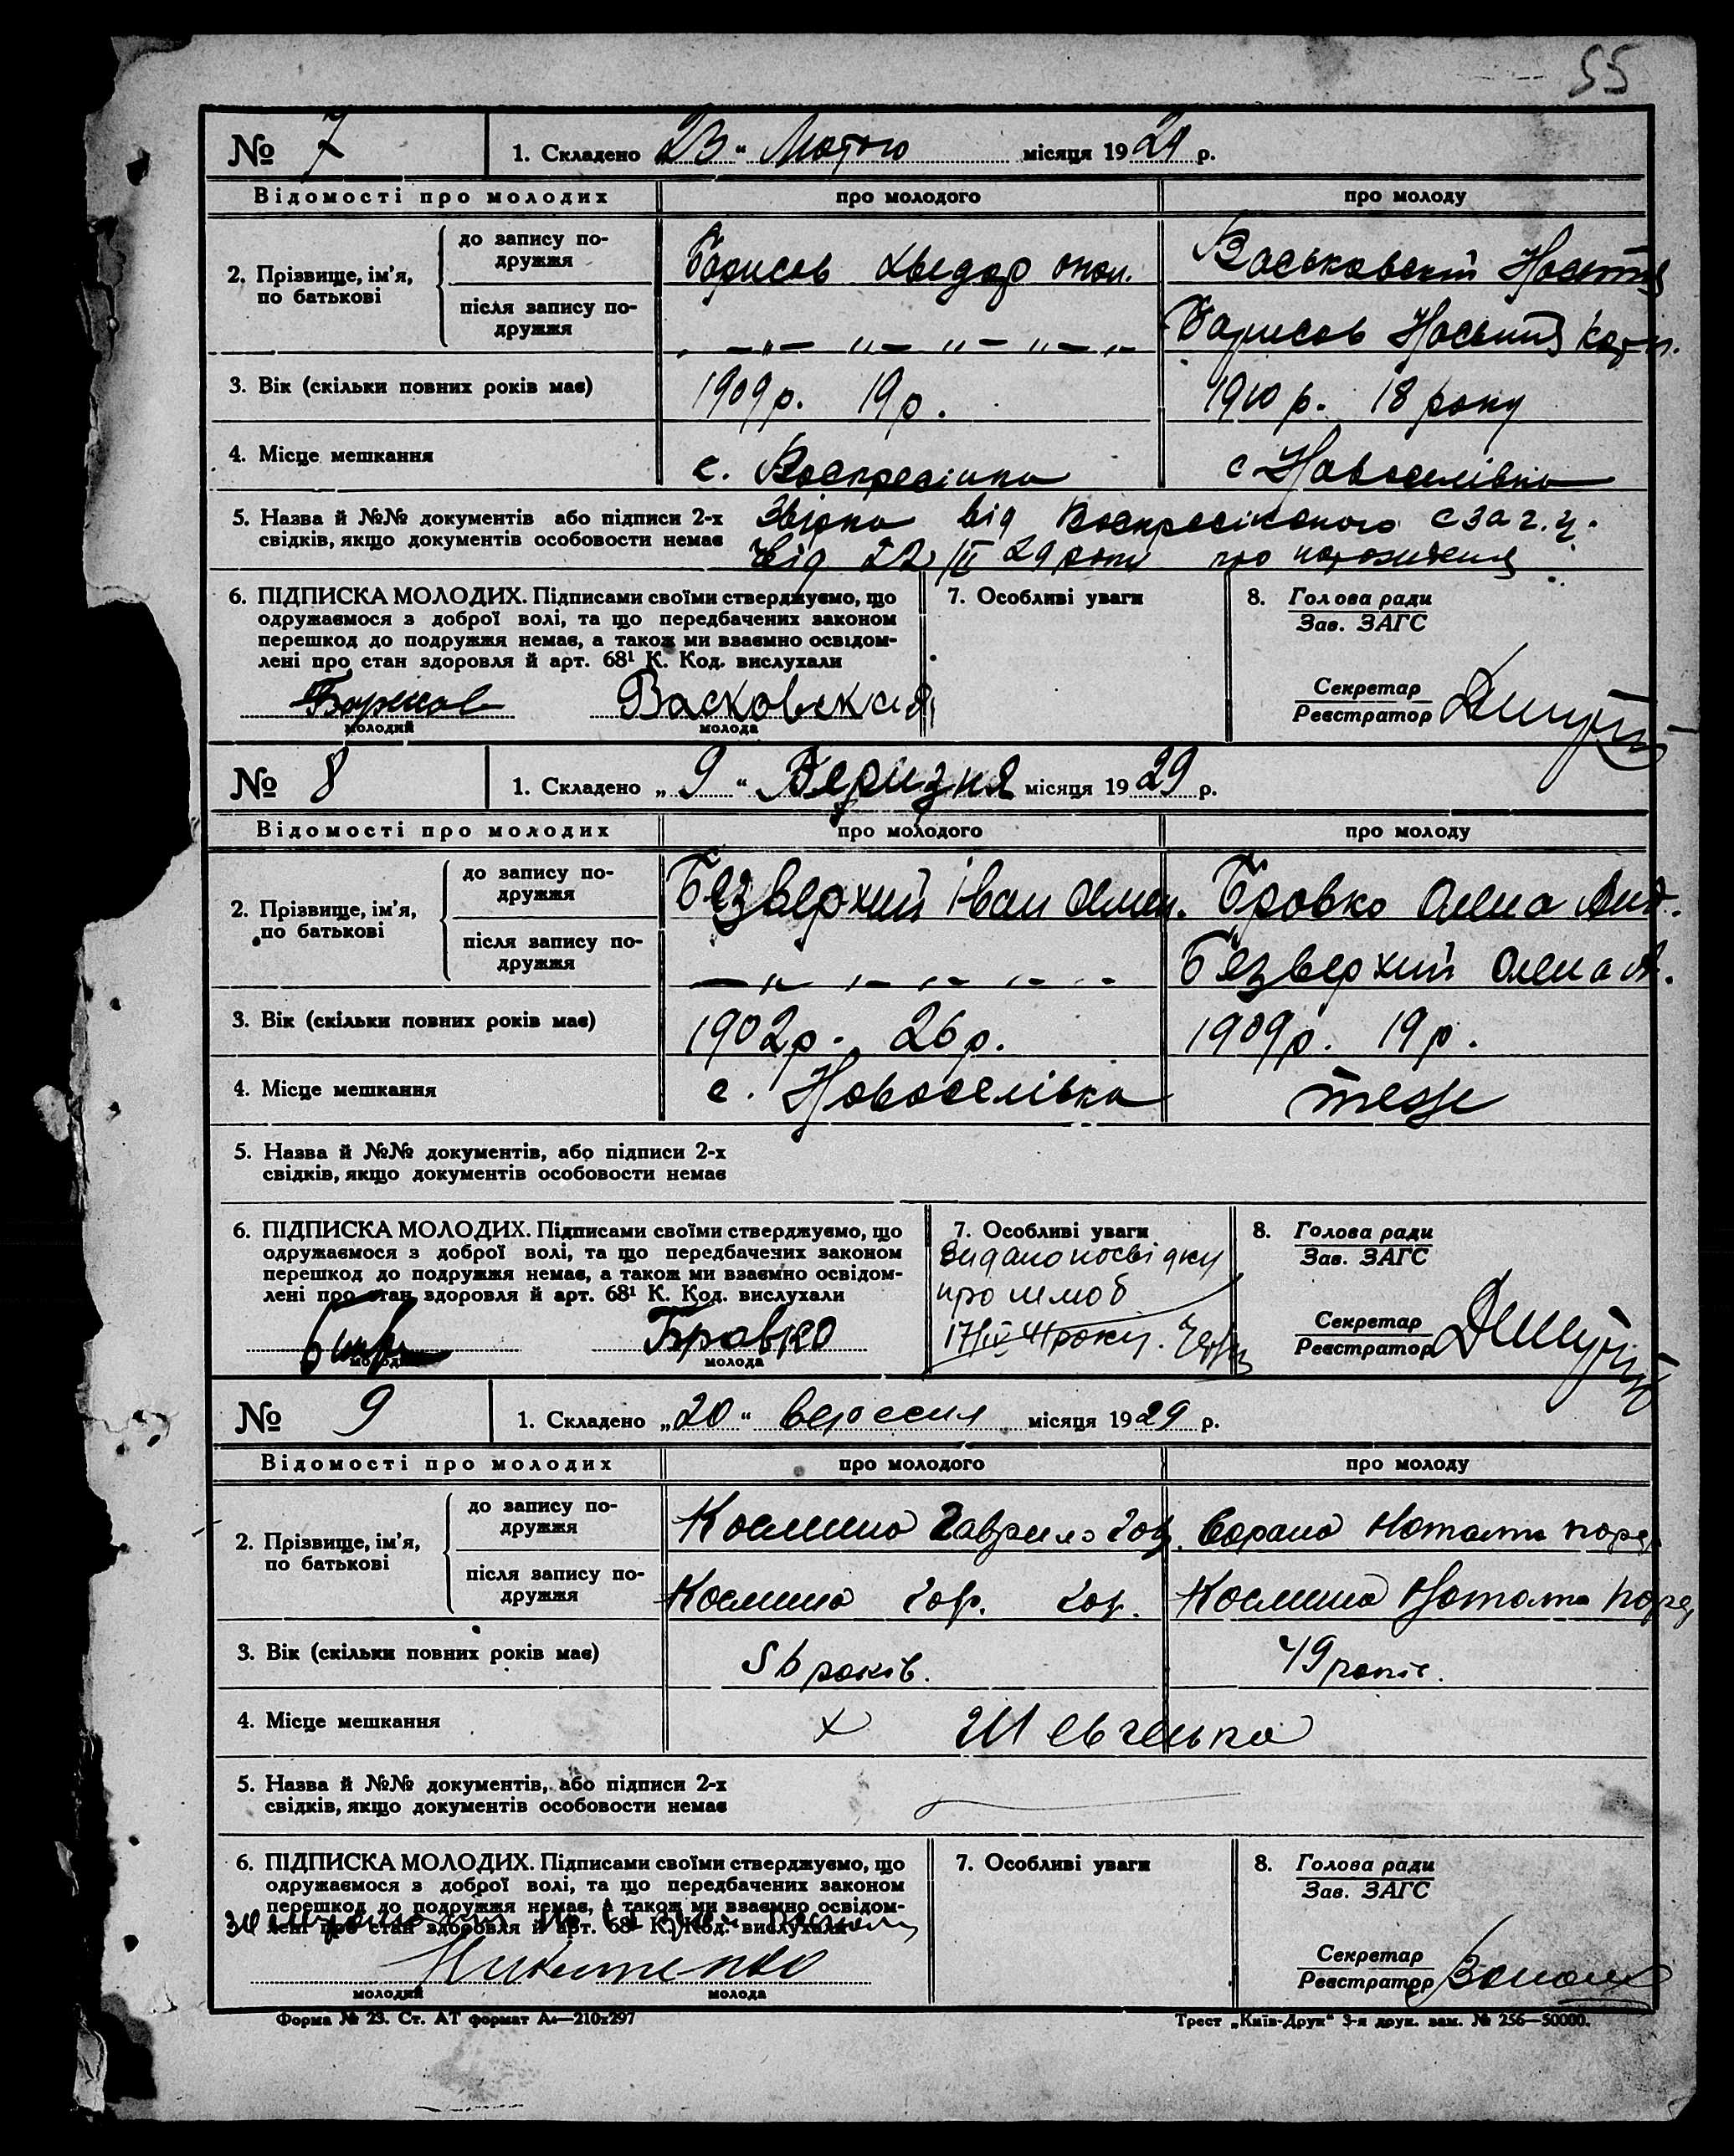 55
№ 7 1. Складено „23“ Лютого місяця 1929 р.
Відомості про молодих про молодого про молоду
2. Прізвище, ім’я, по батькові
до запису подружжя Борисов Хведор Васьковскій
після запису подружжя — „ — „ — „ — „ — „ Борисов
3. Вік (скільки повних років має) 1909 р. 19 р. 1910 р. 18 року
4. Місце мешкання с. Воскресінка с Новоселівка
5. Назва й №№ документів або підписи 2-х від Воскресінського
свідків, якщо документів особовости немає Від 22/II 29 року про
6. ПІДПИСКА МОЛОДИХ. Підписами своїми стверджуємо, що
одружаємося з доброї волі, та що передбачених законом
перешкод до подружжя немає, а також ми взаємно освідом-
лені про стан здоровля й арт. 68¹ К. Код. вислухали
Борисов Васковская
молодий молода
7. Особливі уваги
8. Голова ради
Зав. ЗАГС
Секретар
Реєстратор
№ 8 1. Складено „9“ Беризня місяця 1929 р.
Відомості про молодих про молодого про молоду
2. Прізвище, ім’я, по батькові
до запису подружжя Безверхий Іван Бровко Олена Анд.
після запису подружжя — „ — „ — „ — Безверхий Олена А.
3. Вік (скільки повних років має) 1902 р. 26 р. 1909 р. 19 р.
4. Місце мешкання с. Новоселівка теж
5. Назва й №№ документів, або підписи 2-х
свідків, якщо документів особовости немає
6. ПІДПИСКА МОЛОДИХ. Підписами своїми стверджуємо, що
одружаємося з доброї волі, та що передбачених законом
перешкод до подружжя немає, а також ми взаємно освідом-
лені про стан здоровля й арт. 68¹ К. Код. вислухали
Бровко
молодий молода
7. Особливі уваги
Видано посвідку
про шлюб
17/IV 41 року.
8. Голова ради
Зав. ЗАГС
Секретар
Реєстратор
№ 9 1. Складено „20“ вересня місяця 1929 р.
Відомості про молодих про молодого про молоду
2. Прізвище, ім’я, по батькові
до запису подружжя Космина Гаврило
після запису подружжя Космина Гавр. Космина
3. Вік (скільки повних років має) 56 років. 49 років.
4. Місце мешкання х Шевченка
5. Назва й №№ документів, або підписи 2-х
свідків, якщо документів особовости немає
6. ПІДПИСКА МОЛОДИХ. Підписами своїми стверджуємо, що
одружаємося з доброї волі, та що передбачених законом
перешкод до подружжя немає, а також ми взаємно освідом-
лені про стан здоровля й арт. 68¹ К. Код. вислухали
Никитенко
молодий молода
7. Особливі уваги
8. Голова ради
Зав. ЗАГС
Секретар
Реєстратор
Форма № 23. Ст. АТ формат А₄—210х297 Трест „Київ-Друк“ 3-я друк. зам. № 256—50000.